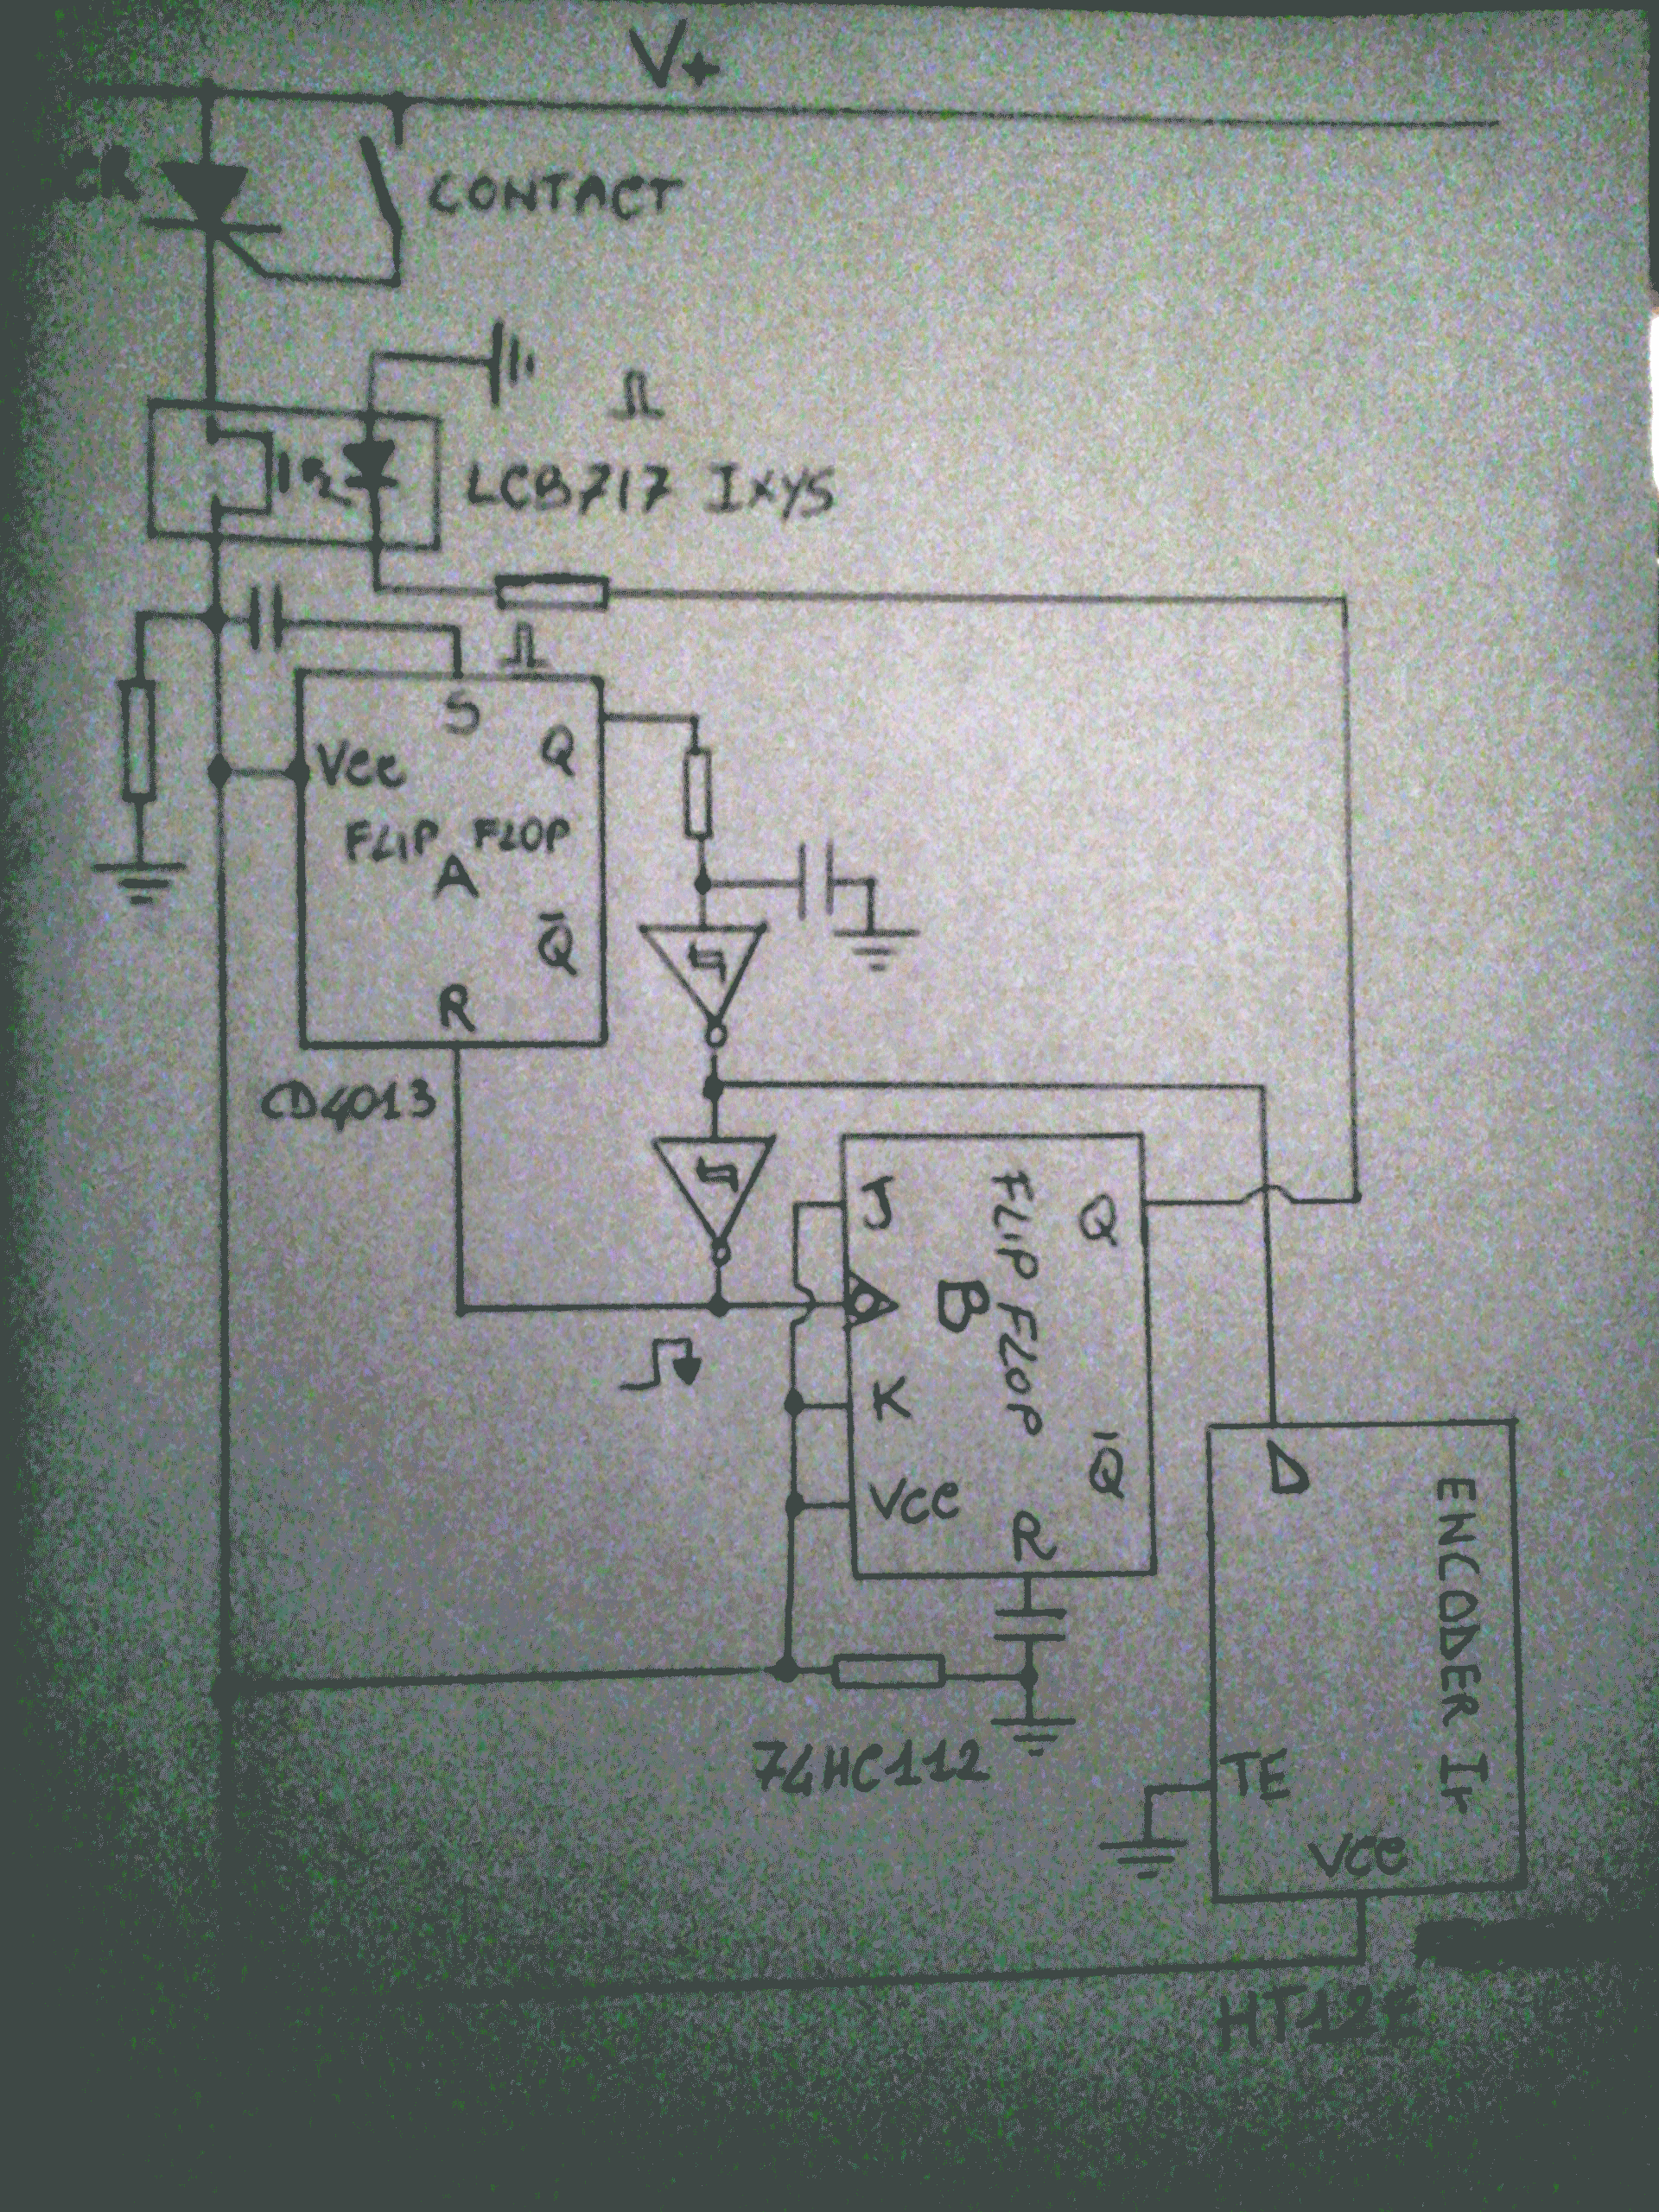 V+
CR
CONTACT
LCB717 IXYS
S
Vcc
Q
FLIP FLOP
A
Q̅
R
CD4013
J
Q
FLIP FLOP
B
K
Q̅
Vcc
R
D
ENCODER Ir
74HC112
TE
Vcc
HT12E